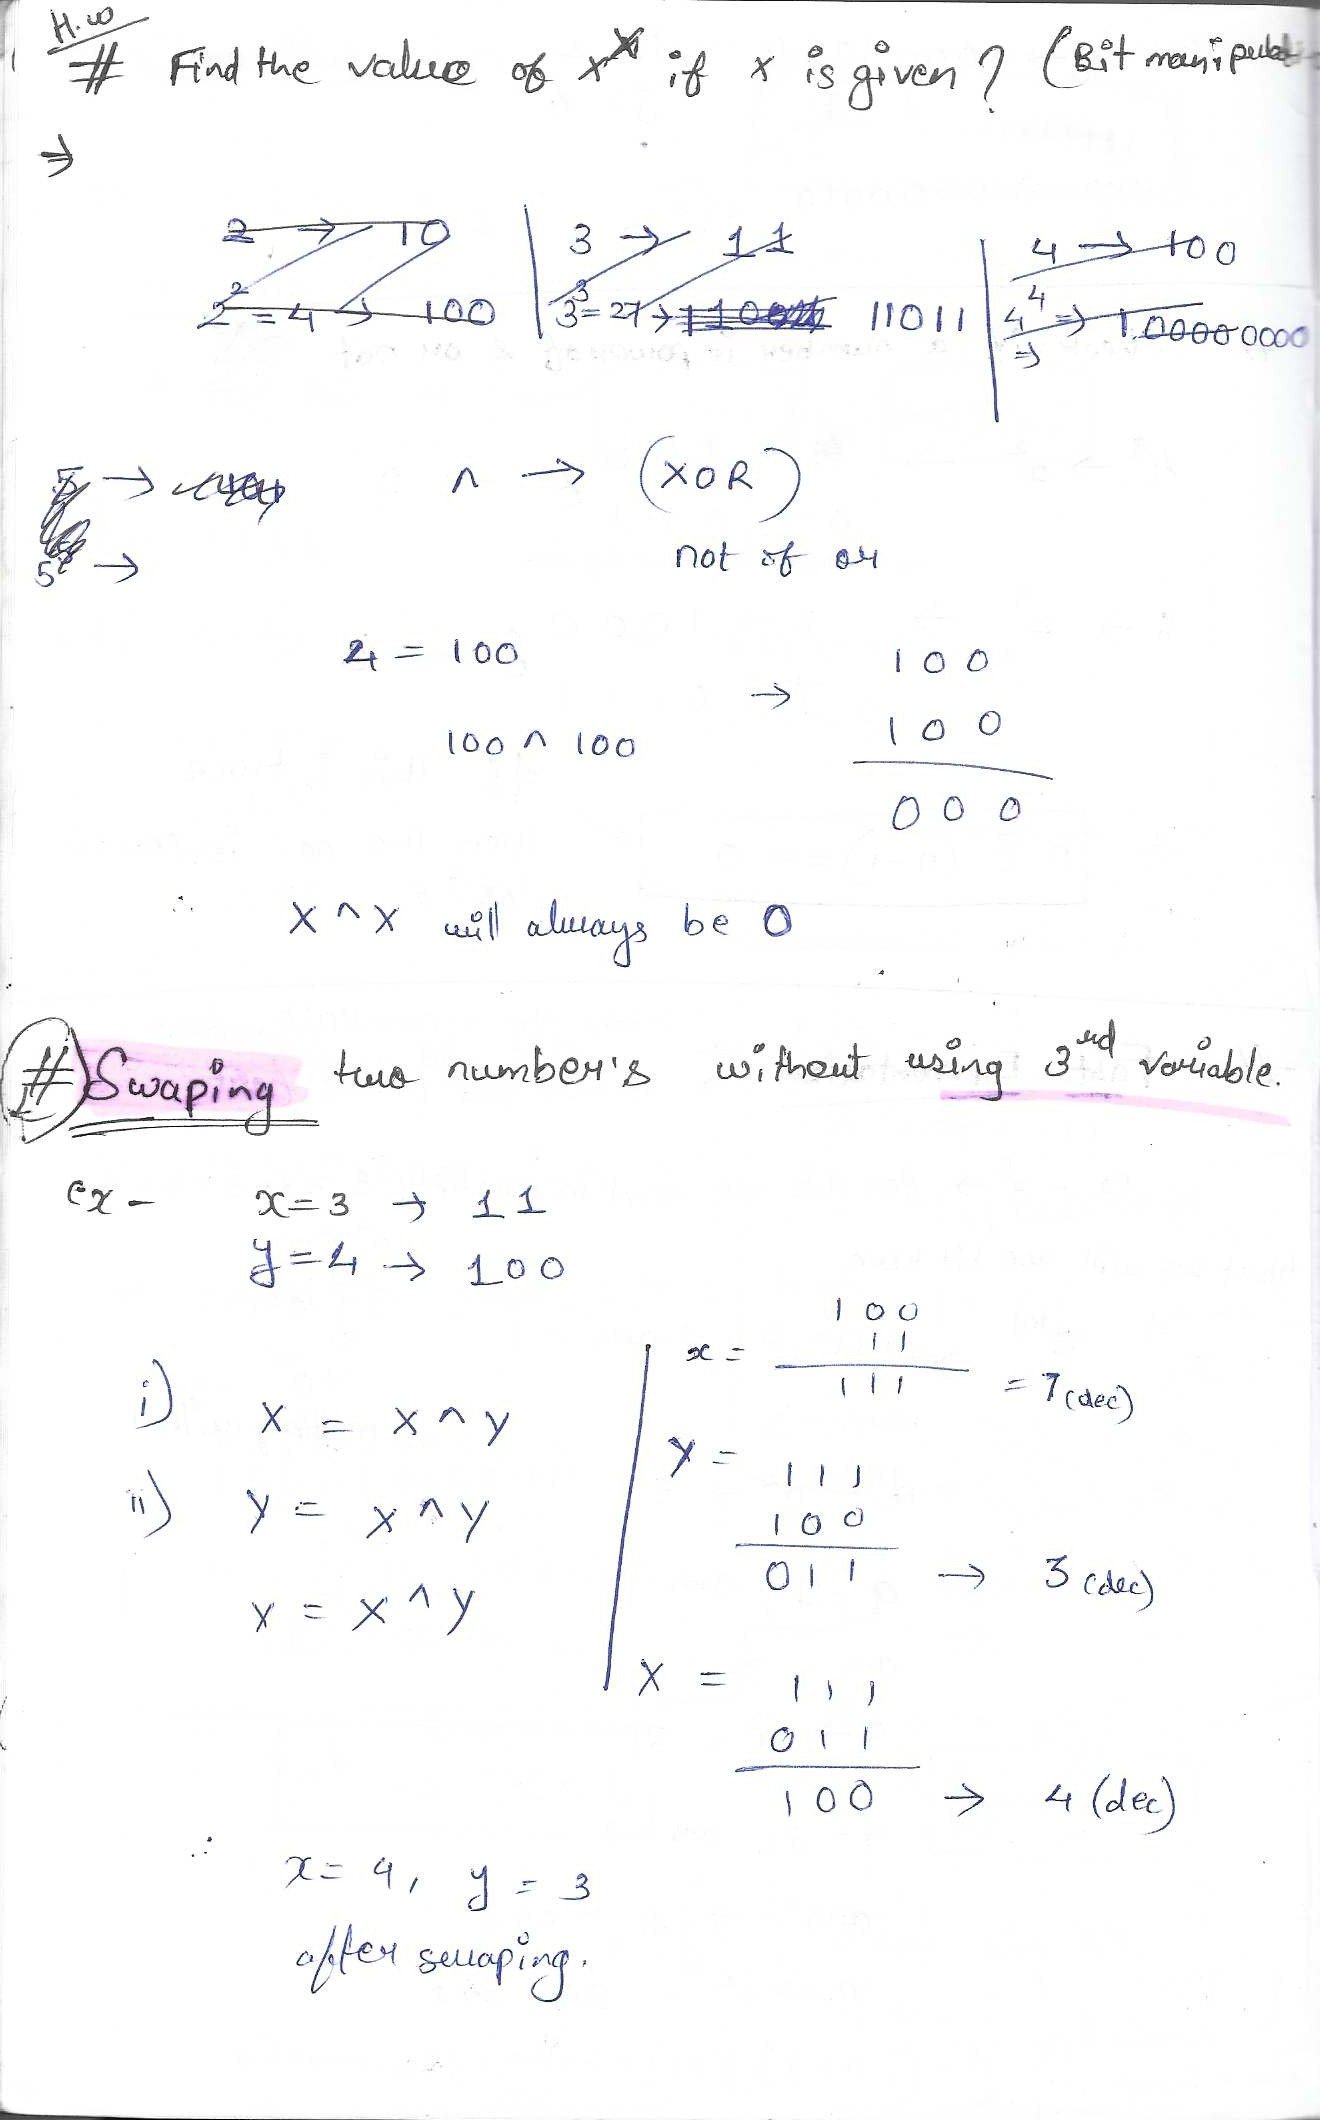 H.w
# Find the value of x^x if x is given? (Bit manipulat
⇒
2 → 10 | 3 → 11 | 4 → 100
2² = 4 → 100 | 3³ = 27 → 11011 | 4⁴ ⇒ 100000000
⇒
5 →
^ → (XOR)
5 →
not of or
4 = 100
→ 100
100 ^ 100
100
000
∴ X ^ X will always be 0
# Swaping two number's without using 3rd variable.
ex - x=3 → 11
y=4 → 100
100
x = 11
111 = 7(dec)
i) X = X ^ Y
Y = 111
ii) Y = X ^ Y
100
011 → 3 (dec)
X = X ^ Y
X = 111
011
100 → 4 (dec)
∴ x = 4, y = 3
after swaping.